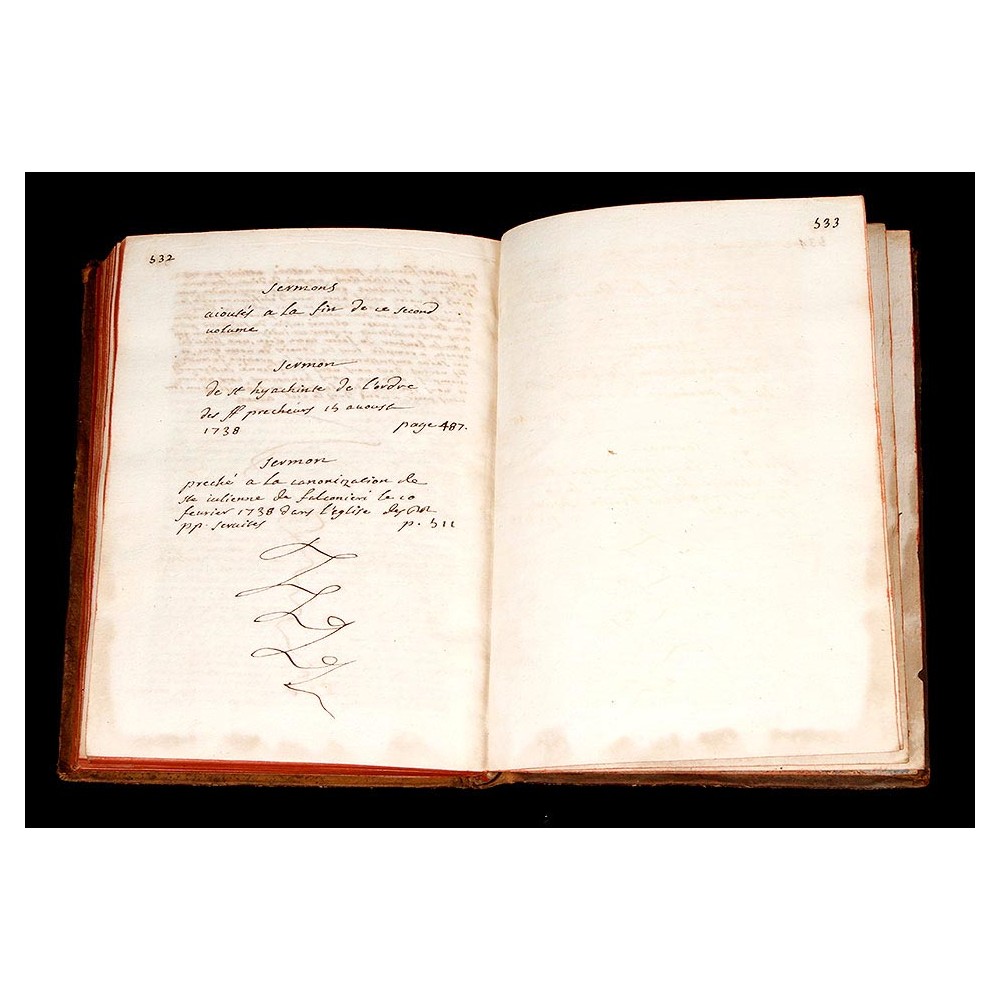 532
sermons
aioutés a la fin de ce second
volume
sermon
de st hyachinte de l'ordre
des ff precheurs 15 aoust
1738 page 487.
sermon
preché a la canonization de
ste iulienne de falconieri le 10
fevrier 1738 dans l'église des RR
pp. servites p. 511
533